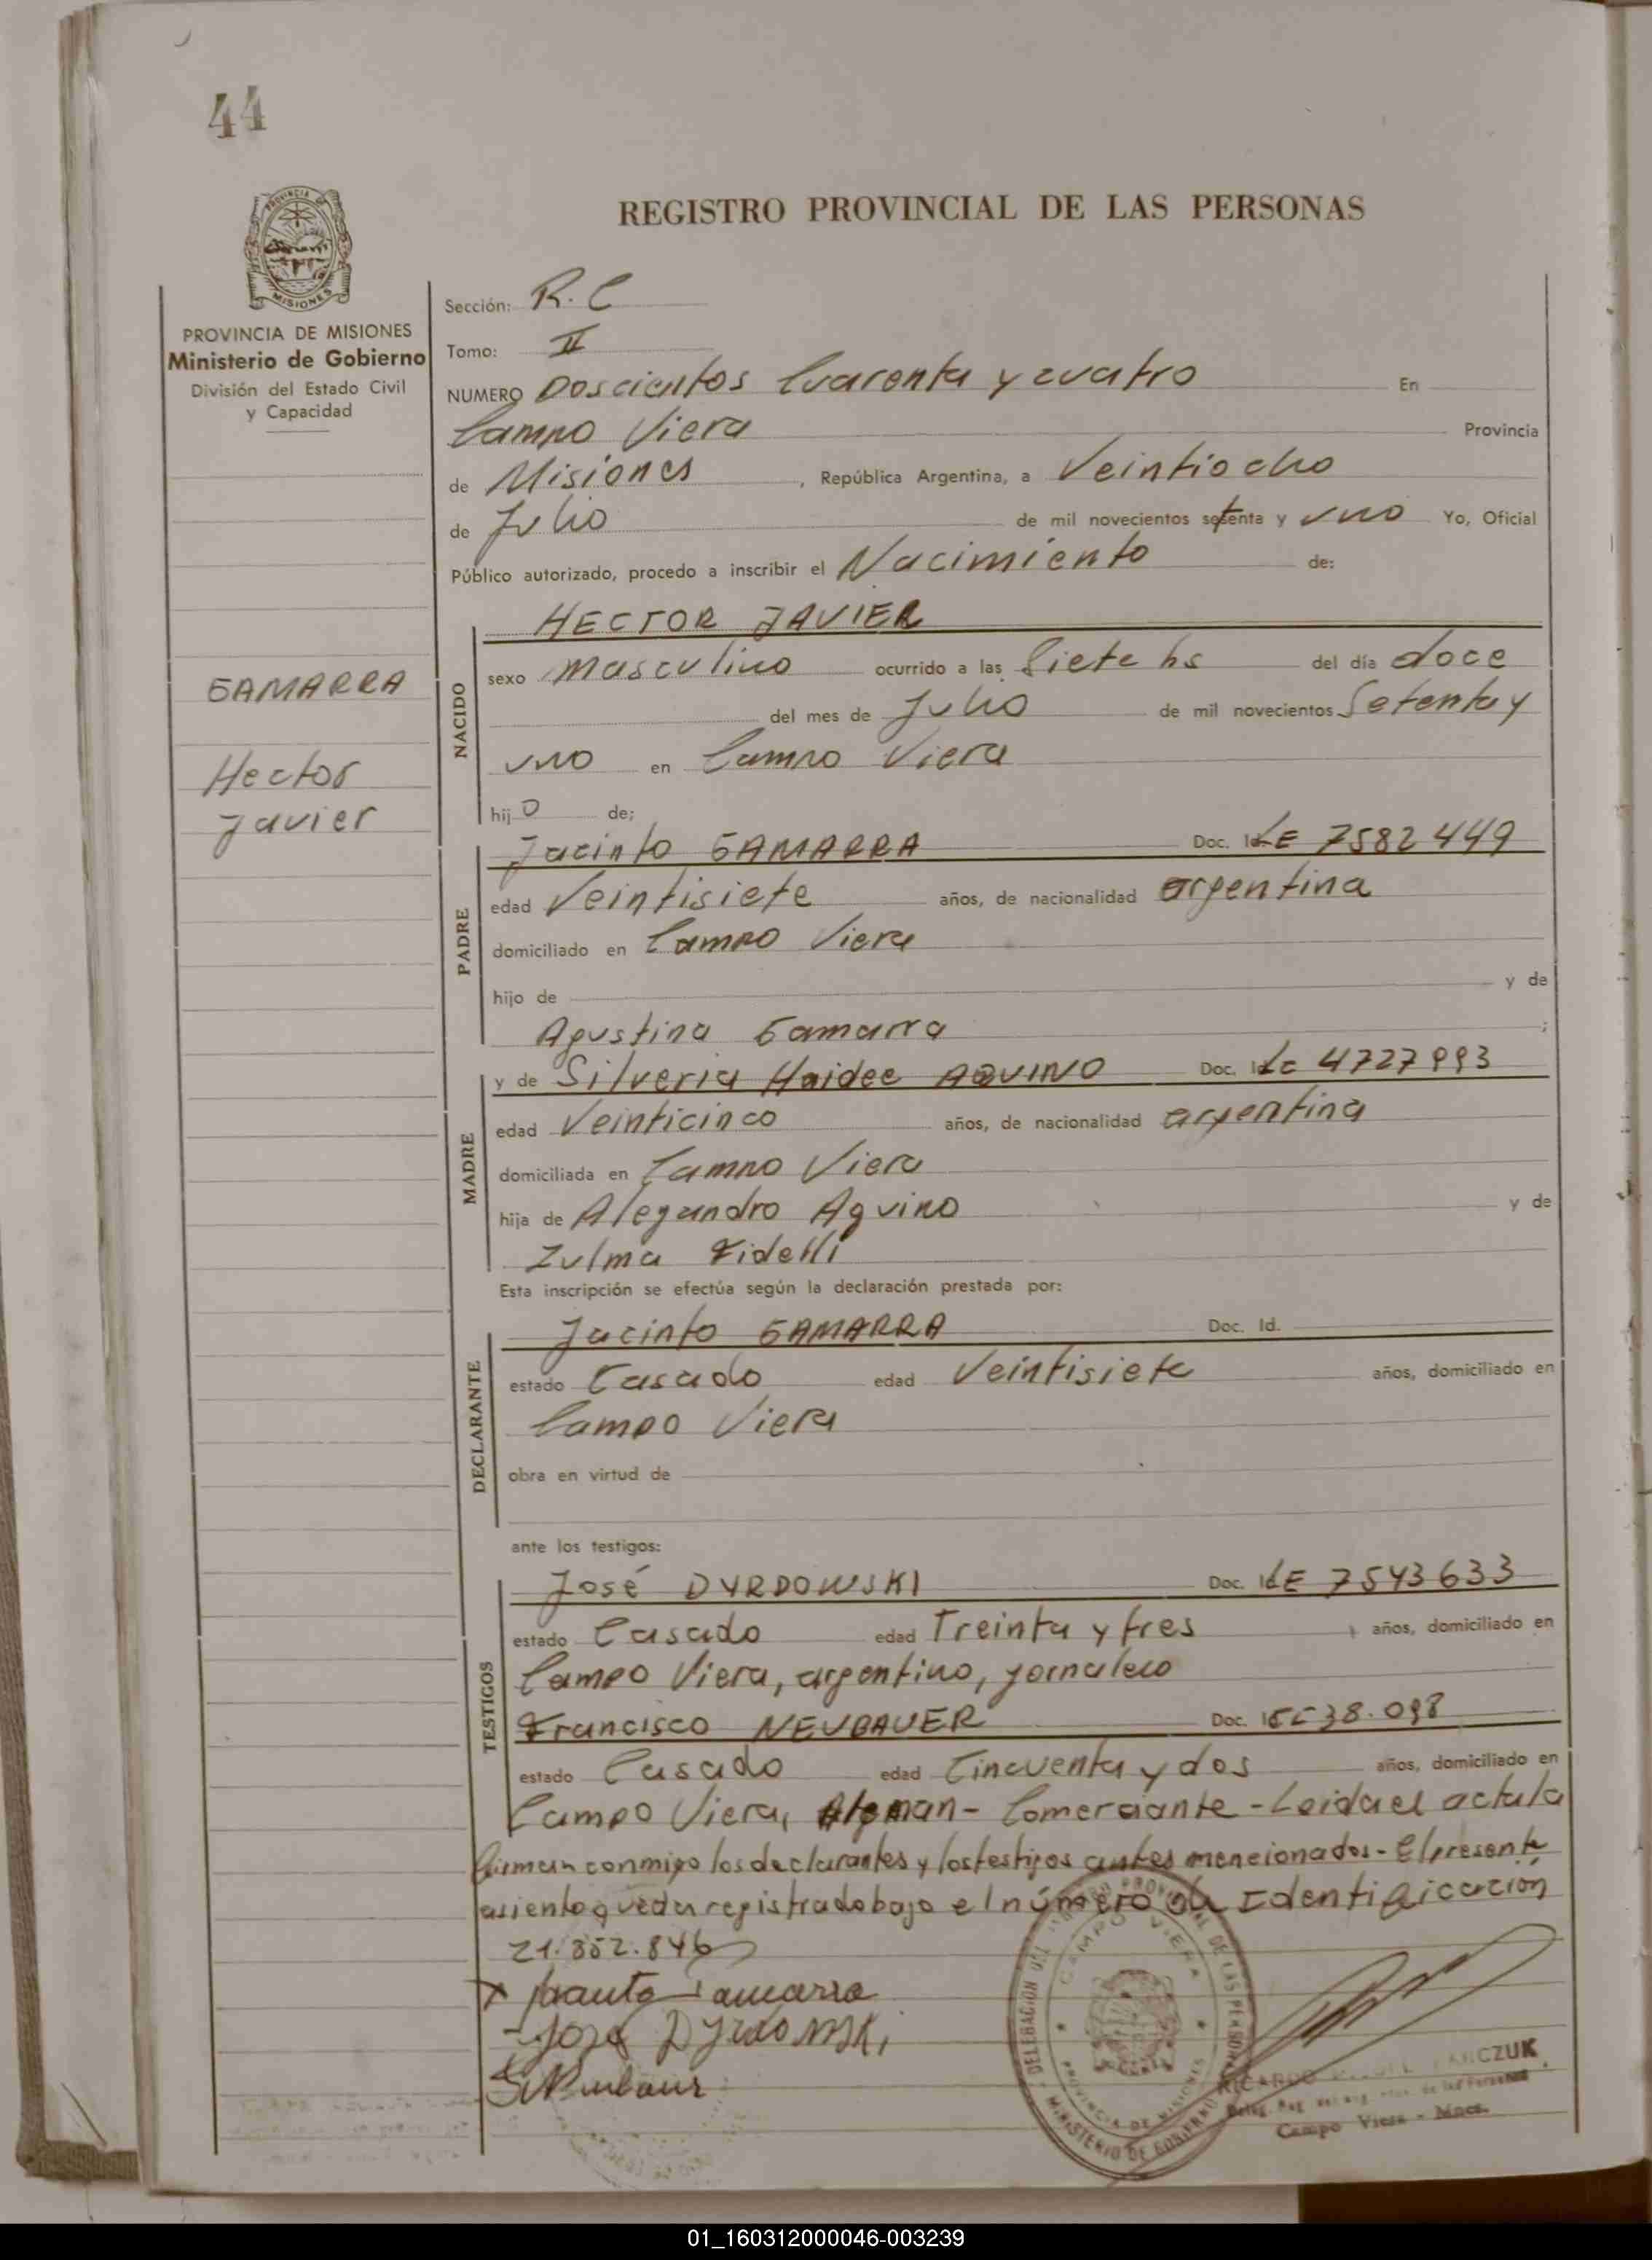 44
REGISTRO PROVINCIAL DE LAS PERSONAS
PROVINCIA DE MISIONES
Ministerio de Gobierno
División del Estado Civil
y Capacidad
Sección: R.C
Tomo: II
NUMERO Doscientos Cuarenta y cuatro En
Campo Viera Provincia
de Misiones, República Argentina, a Veintiocho
de Julio de mil novecientos setenta y uno Yo, Oficial
Público autorizado, procedo a inscribir el Nacimiento de:
GAMARRA
Hector
Javier
NACIDO
HECTOR JAVIER
sexo masculino ocurrido a las Siete hs del día doce
del mes de Julio de mil novecientos Setenta y
uno en Campo Viera
hijo de;
PADRE
Jacinto GAMARRA Doc. Id LE 7582449
edad Veintisiete años, de nacionalidad argentina
domiciliado en Campo Viera
hijo de y de
Agustina Gamarra ;
MADRE
y de Silveria Haidee AQUINO Doc. Id Lc 4727993
edad Veinticinco años, de nacionalidad argentina
domiciliada en Campo Viera
hija de Alejandro Aquino y de
Zulma Fidelli
Esta inscripción se efectúa según la declaración prestada por:
DECLARANTE
Jacinto GAMARRA Doc. Id.
estado Casado edad Veintisiete años, domiciliado en
Campo Viera
obra en virtud de
ante los testigos:
TESTIGOS
José DYRDOWSKI Doc. Id LE 7543633
estado Casado edad Treinta y tres años, domiciliado en
Campo Viera, argentino, jornalero
Francisco NEUBAUER Doc. 38.098
estado Casado edad Cincuenta y dos años, domiciliado en
Campo Viera, Aleman - Comerciante - Leida el acta la
firman conmigo los declarantes y los testigos antes mencionados - El presente
asiento queda registrado bajo el número de Identificacion
21.852.846
x Jacinto Gamarra
José Dyrdowski
DELEGACION DEL REGISTRO PROVINCIAL DE LAS PERSONAS
CAMPO VIERA
PROVINCIA DE MISIONES
MINISTERIO DE GOBIERNO
RICARDO
Campo Viera - Mnes.
01_160312000046-003239